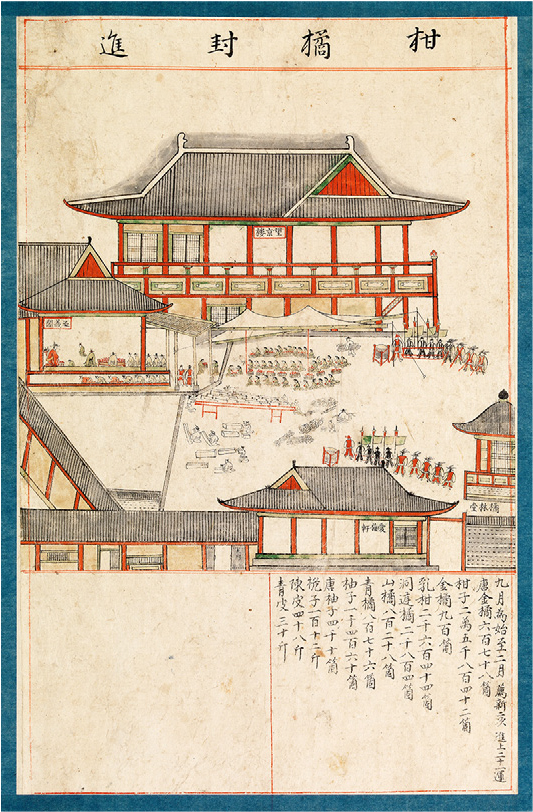 柑橘封進
望京樓
延曦閣
橘林堂
愛梅軒
九月爲始至二月 薦新 進上
唐金橘六百七十八箇
柑子二萬五千八百四十二箇
金橘九百箇
乳柑二千六百四十四箇
洞庭橘二千八百四箇
山橘八百二十八箇
青橘八百七十六箇
柚子一千四百六十箇
唐柚子四千十箇
梔子一百十二斤
陳皮四十八斤
青皮三十斤